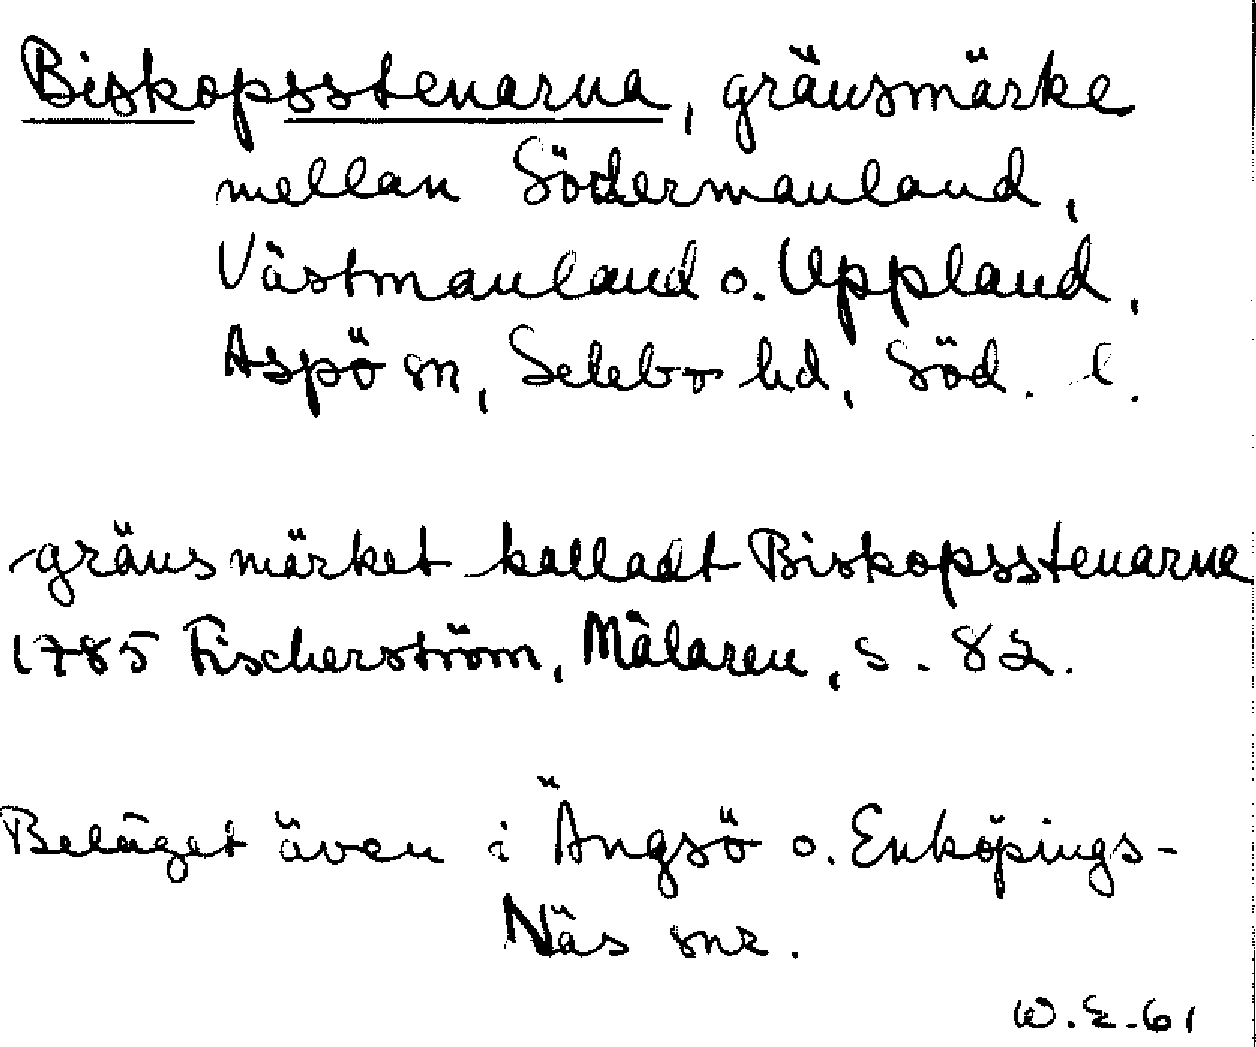 Biskopsstenarna, gränsmärke
mellan Södermanland,
Västmanland o. Uppland,
Aspö sn, Selebo hd, Söd. l.
gränsmärket kalladt Biskopsstenarne
1785 Fischerström, Mälaren, s. 82.
Beläget även i Ängsö o. Enköpings-
Näs snr.
W.E.61